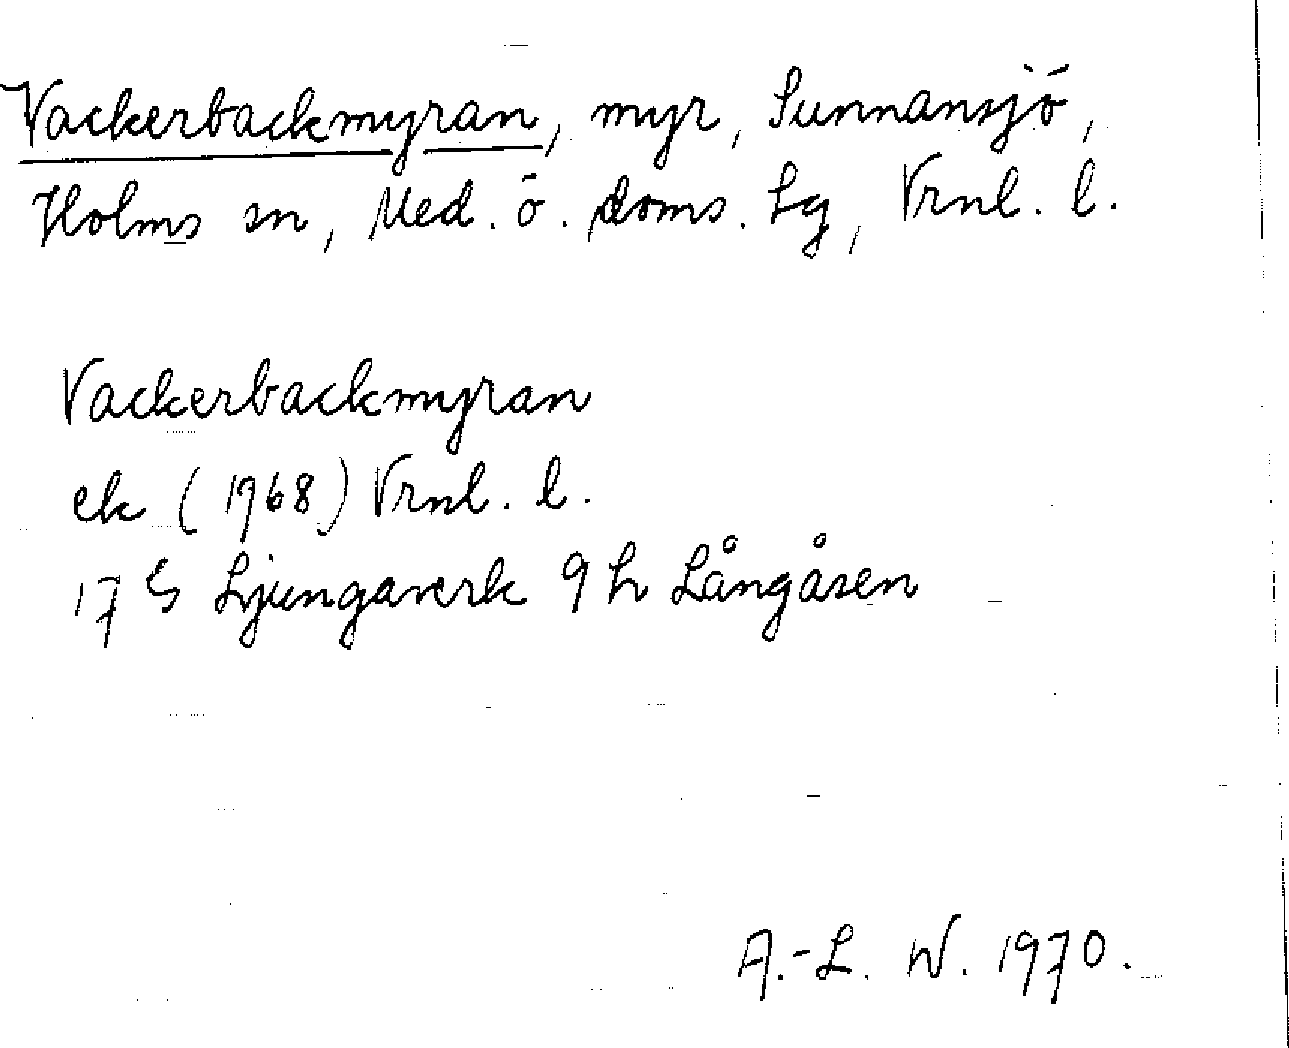 Vackerbackmyran, myr, Sunnansjö,
Holms sn, Med. ö. doms. Lg, Vrnl. l.
Vackerbackmyran
ek (1968) Vrnl. l.
17 G Ljungaverk 9 h Långåsen
A.-L. W. 1970.